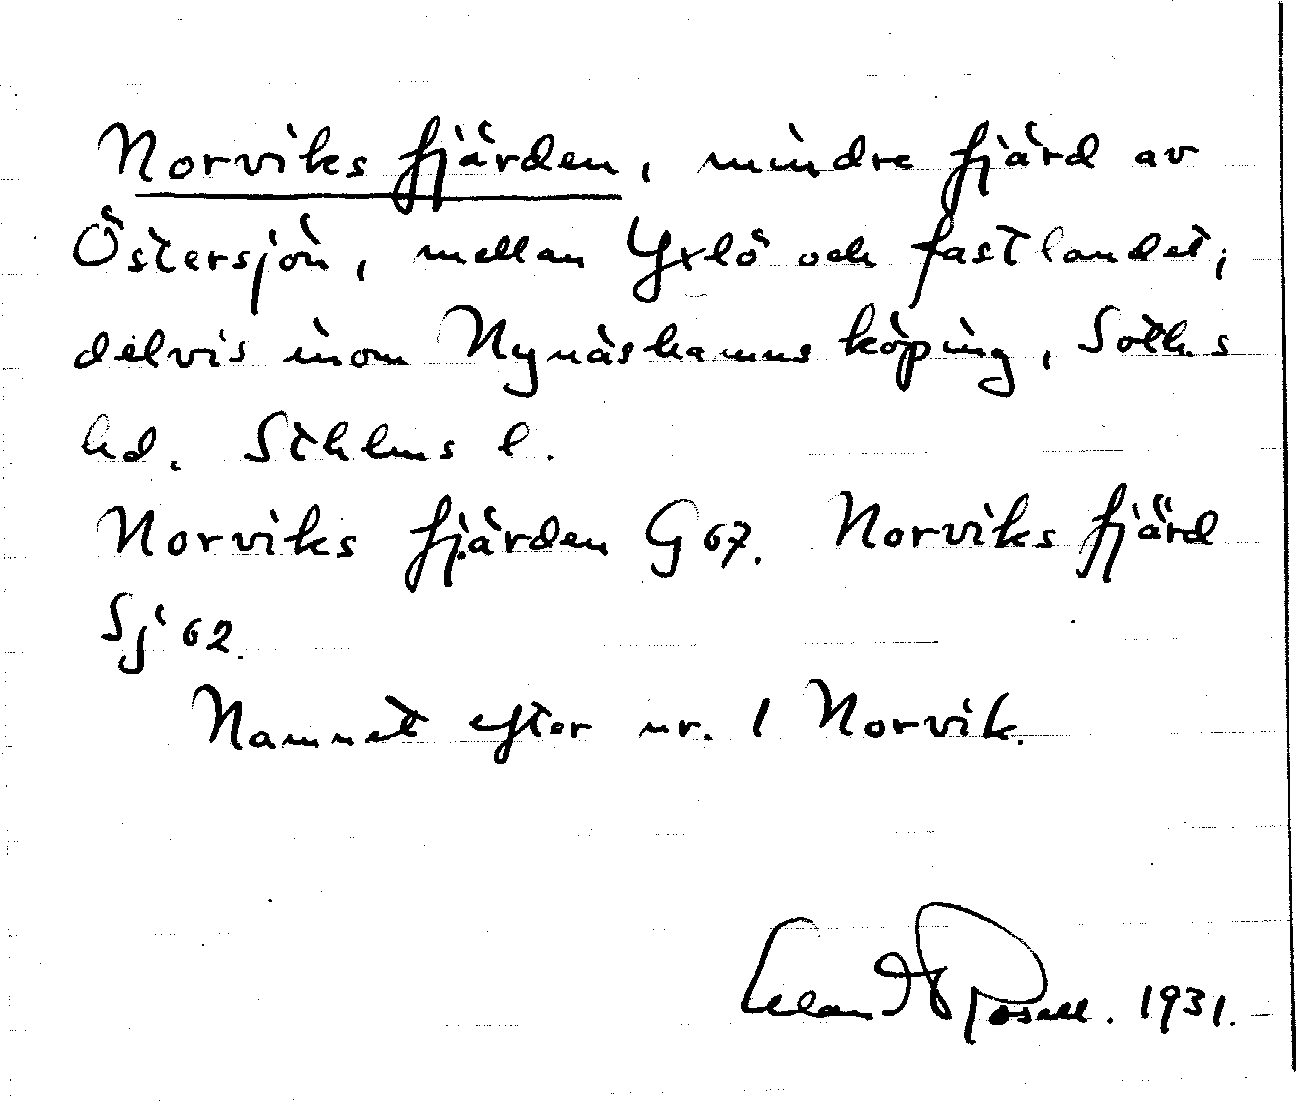 Norviks fjärden, mindre fjärd av
Östersjön, mellan Yxlö och fastlandet;
delvis inom Nynäshamns köping, Soth. s
hd. Sthlms l.
Norviks fjärden G 67. Norviks fjärd
Sj 62.
Namnet efter nr. 1 Norvik.
Rosell. 1931.